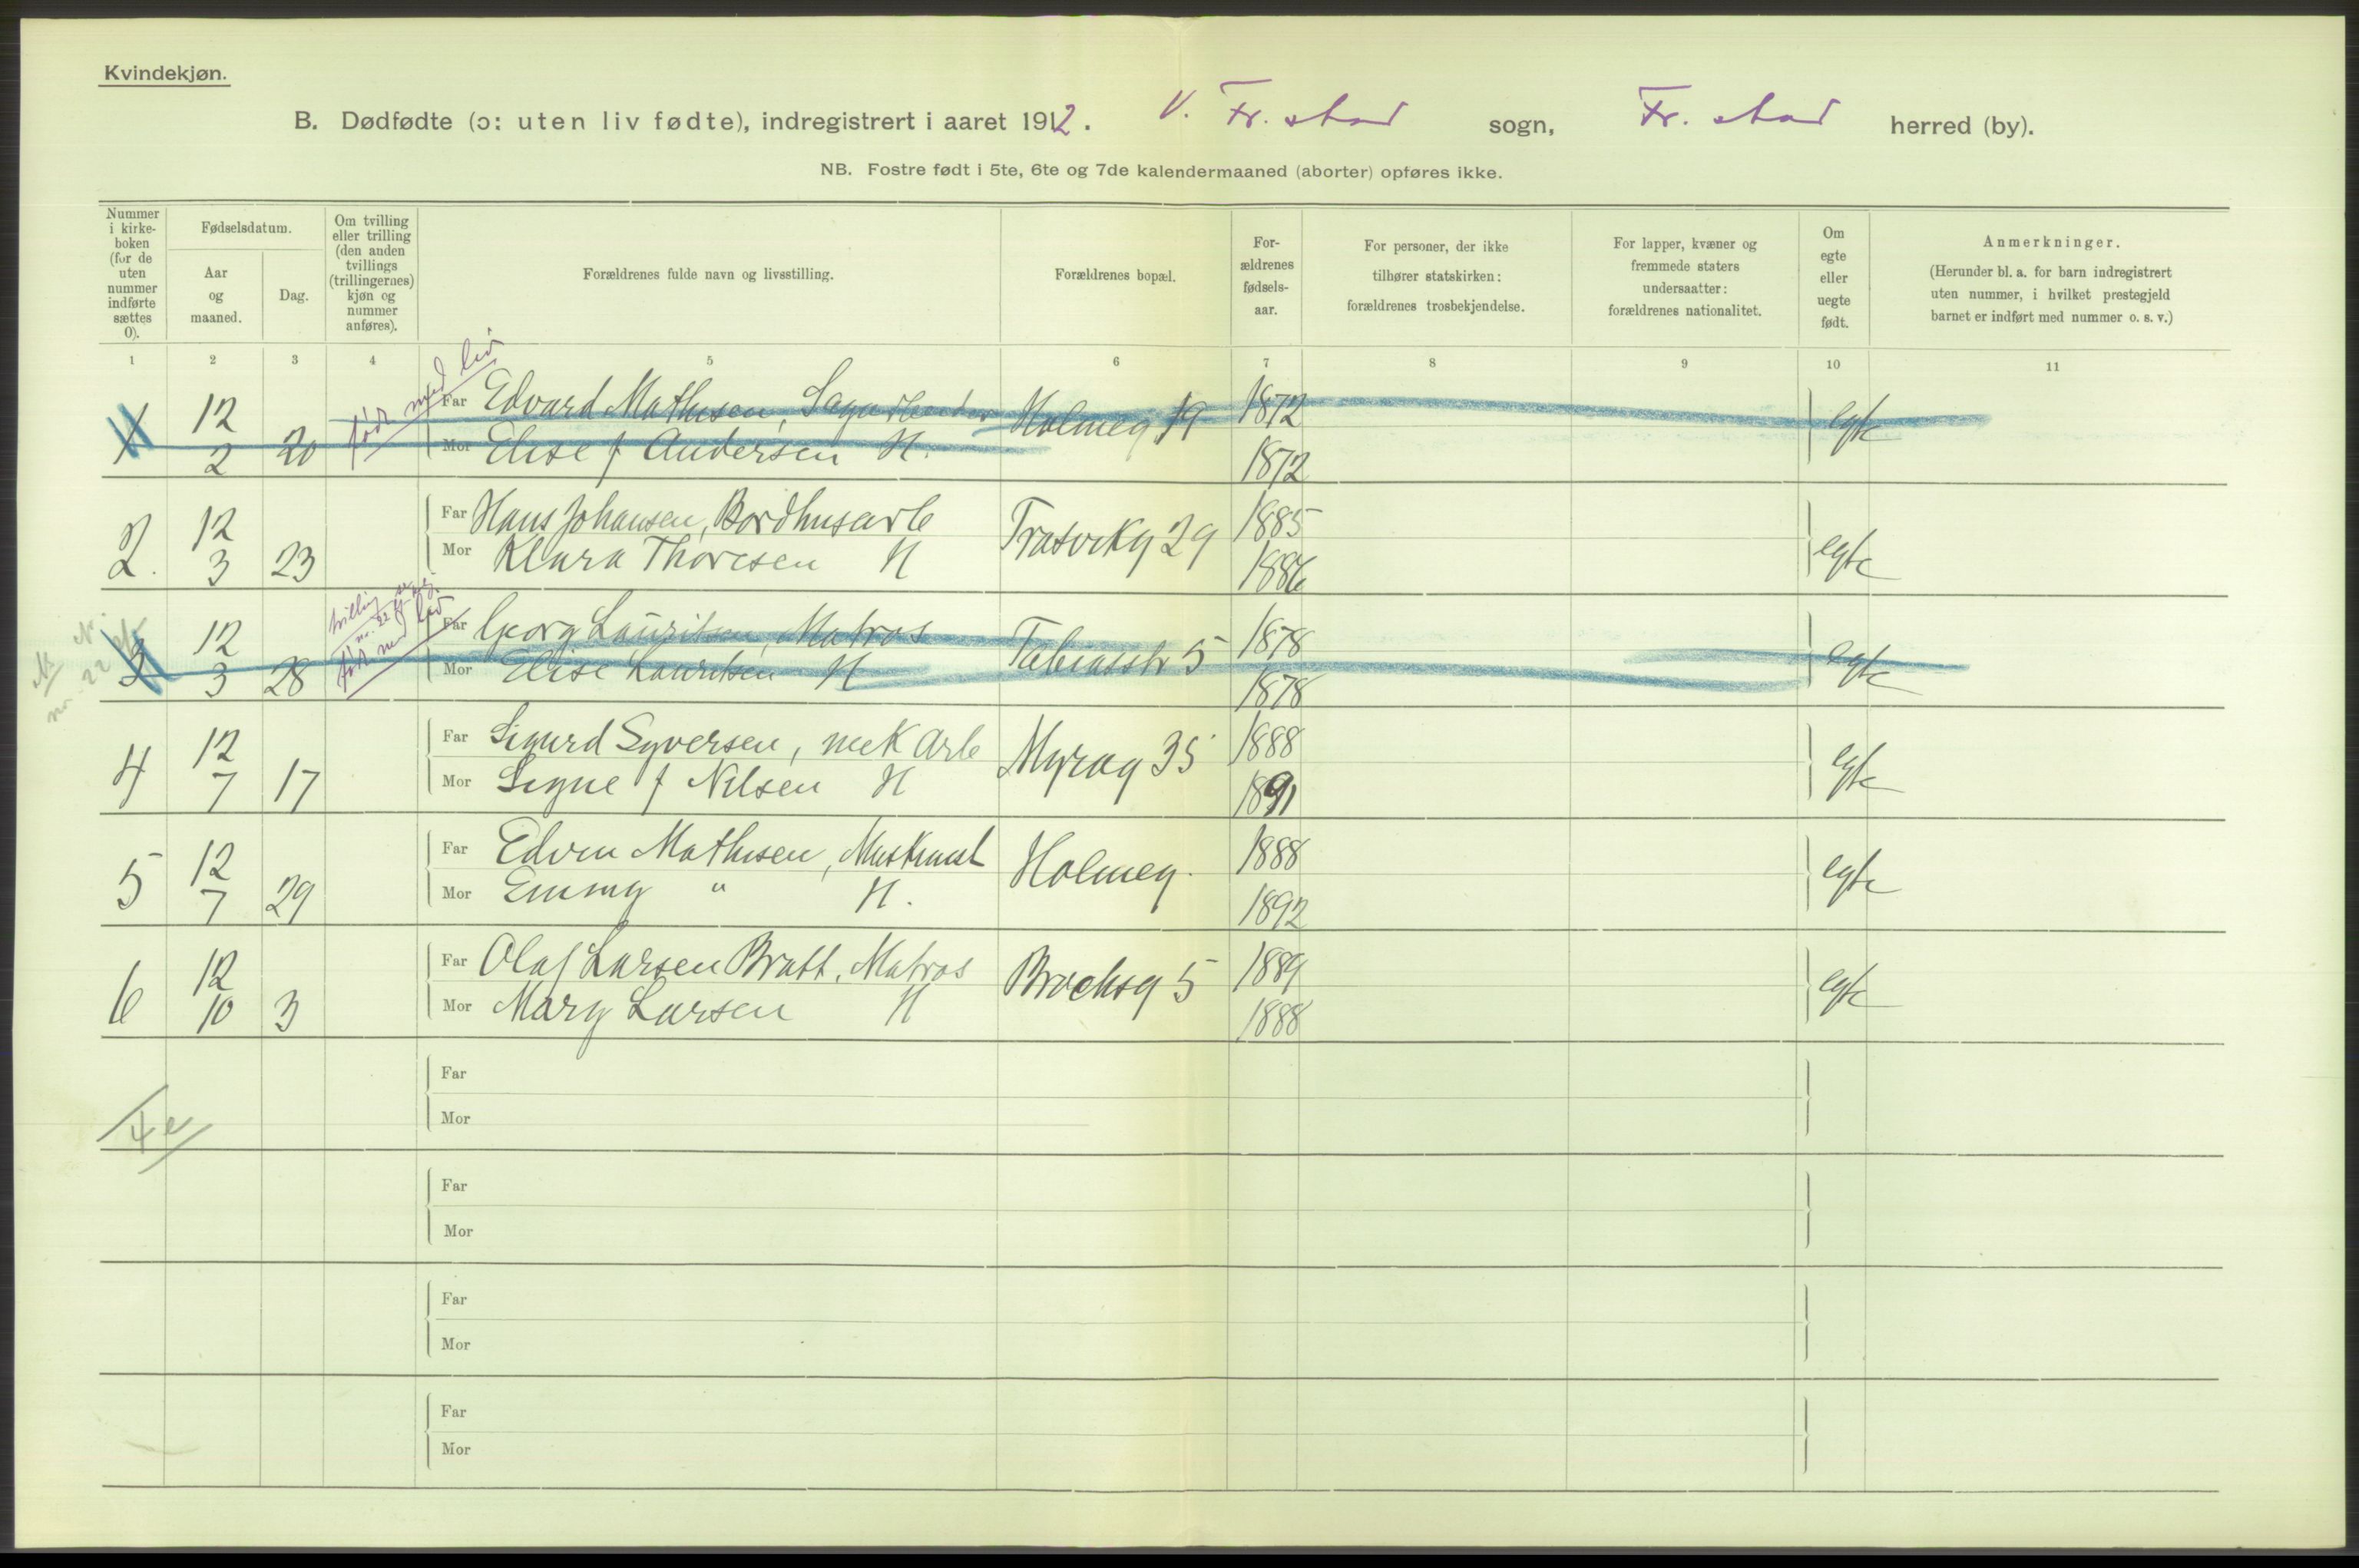 Kvindekjøn.
B. Dødfødte (ɔ: uten liv fødte), indregistrert i aaret 1912. V. Fr. stad sogn, Fr. stad herred (by).
NB. Fostre født i 5te, 6te og 7de kalendermaaned (aborter) opføres ikke.
Nummer i kirke-boken (for de uten nummer indførte sættes 0).
Fødselsdatum.
Aar og maaned.
Dag.
Om tvilling eller trilling (den anden tvillings (trillingernes) kjøn og nummer anføres).
Forældrenes fulde navn og livsstilling.
Forældrenes bopæl.
For-ældrenes fødsels-aar.
For personer, der ikke tilhører statskirken: forældrenes trosbekjendelse.
For lapper, kvæner og fremmede staters undersaatter: forældrenes nationalitet.
Om egte eller uegte født.
Anmerkninger.
(Herunder bl. a. for barn indregistrert uten nummer, i hvilket prestegjeld barnet er indført med nummer o. s. v.)
1 2 3 4 5 6 7 8 9 10 11
født med liv
1 12 2 20 Far Edvard Mathisen, Holmeg 19 1872 egte
Mor Elise f Andersen H. 1872
2. 12 3 23 Far Hans Johansen, Bordhusarb Trasvikg 29 1885 egte
Mor Klara Thoresen H 1886
født med liv
nr. 22
3 12 3 28 Far Georg Lauritsen, Matros Tobiasstr 5 1878 egte
Mor Elise Lauritsen H 1878
4 12 7 17 Far Sigurd Syversen, mek Arb Myrag 35 1888 egte
Mor Signe f Nilsen H 1891
5 12 7 29 Far Edvin Mathisen, Maskinist Holmeg. 1888 egte
Mor Emmy " H. 1892
6 12 10 3 Far Olaf Larsen Bratt, Matros Brochsg 5 1889 egte
Mor Mary Larsen H 1888
Far
Mor
4 e
Far
Mor
Far
Mor
Far
Mor